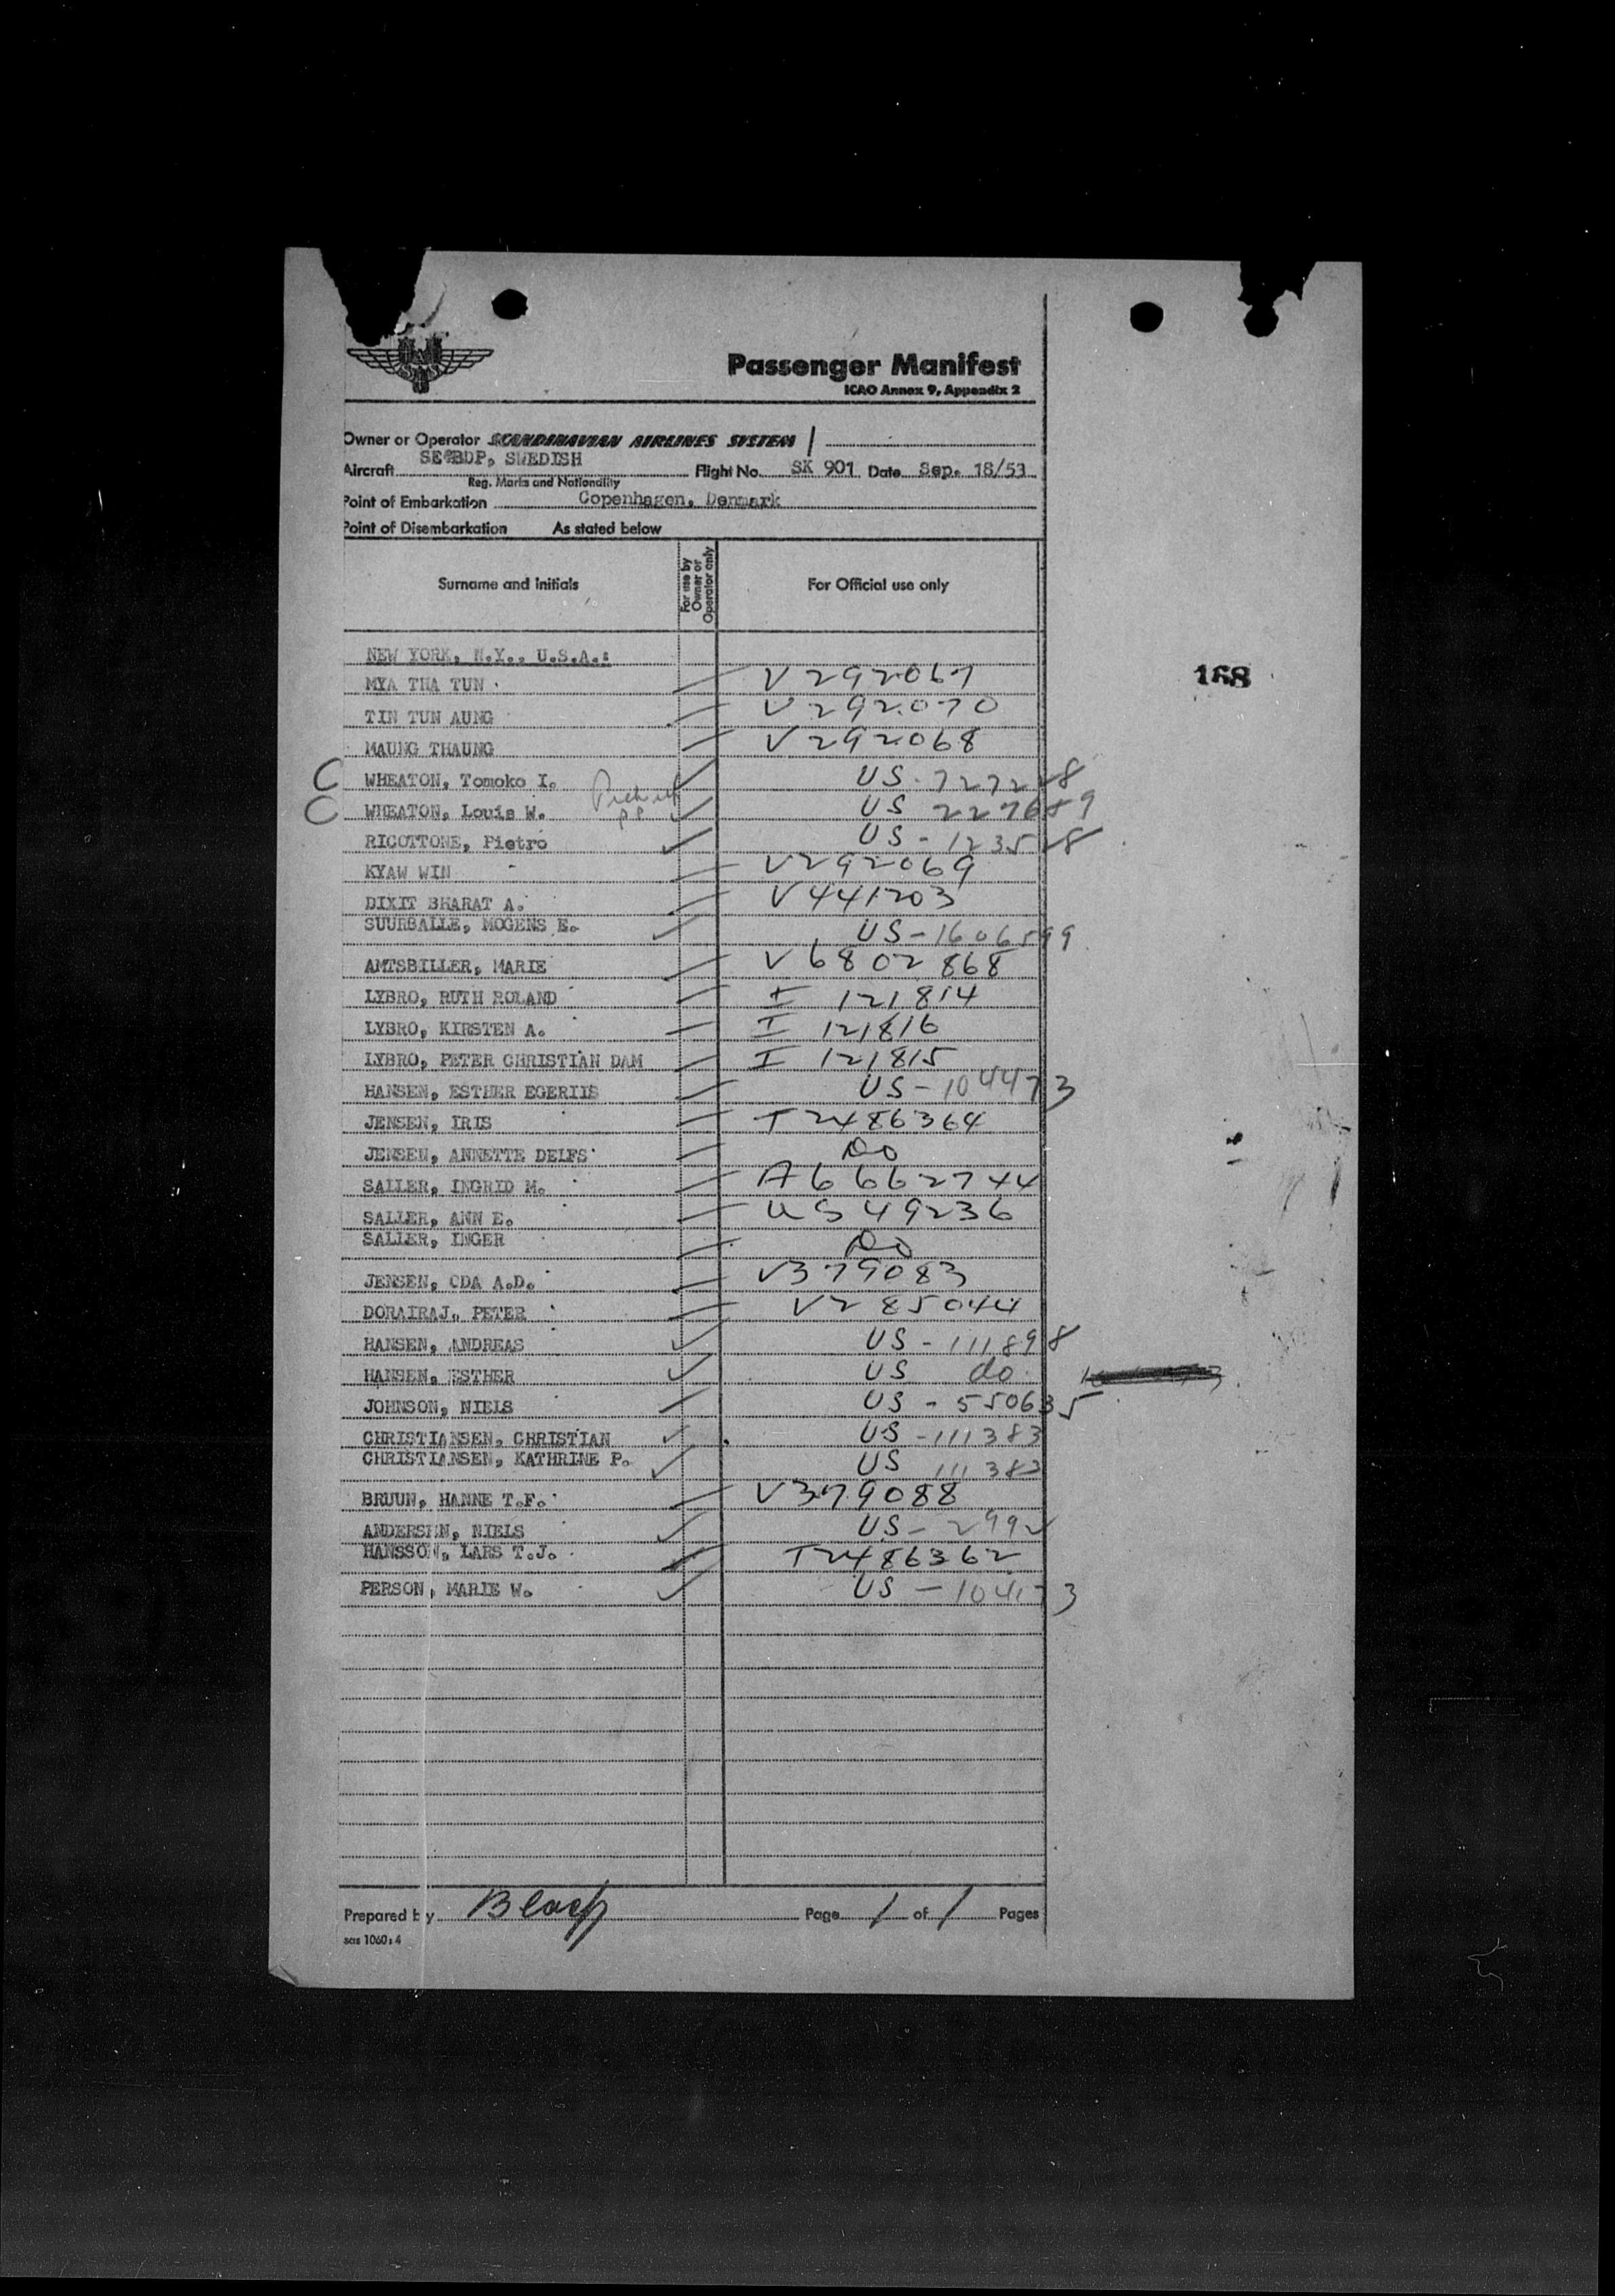 Passenger Manifest
ICAO Annex 9, Appendix 2
Owner or Operator SCANDINAVIAN AIRLINES SYSTEM
Aircraft SE-BDP, SWEDISH Flight No. SK 901 Date Sep. 18/53
Reg. Marks and Nationality
Point of Embarkation Copenhagen, Denmark
Point of Disembarkation As stated below
Surname and Initials For use by Owner or Operator only For Official use only
NEW YORK, N.Y., U.S.A.:
168
MYA THA TUN V 292067
TIN TUN AUNG V 292070
MAUNG THAUNG V 292068
C WHEATON, Tomoko I. US-
C WHEATON, Louis W. US 227689
RICOTTONE, Pietro US-
KYAW WIN V292069
DIXIT BHARAT A. V441203
SUURBALLE, MOGENS E. US-1606599
AMTSBILLER, MARIE V 6802868
LYBRO, RUTH ROLAND I 121814
LYBRO, KIRSTEN A. I 121816
LYBRO, PETER CHRISTIAN DAM I 121815
HANSEN, ESTHER EGERIIS US-104473
JENSEN, IRIS T2486364
JENSEN, ANNETTE DELFS Do
SALLER, INGRID M. A6662744
SALLER, ANN E. US49236
SALLER, INGER Do
JENSEN, ODA A.D. V379083
DORAIRAJ, PETER V285044
HANSEN, ANDREAS US-111898
HANSEN, ESTHER US do
JOHNSON, NIELS US-550635
CHRISTIANSEN, CHRISTIAN US-111383
CHRISTIANSEN, KATHRINE P. US 111383
BRUUN, HANNE T.F. V379088
ANDERSEN, NIELS US-2992
HANSSON, LARS T.J. T2486362
PERSON, MARIE W. US-
Prepared by Page 1 of 1 Pages
sas 1060:4